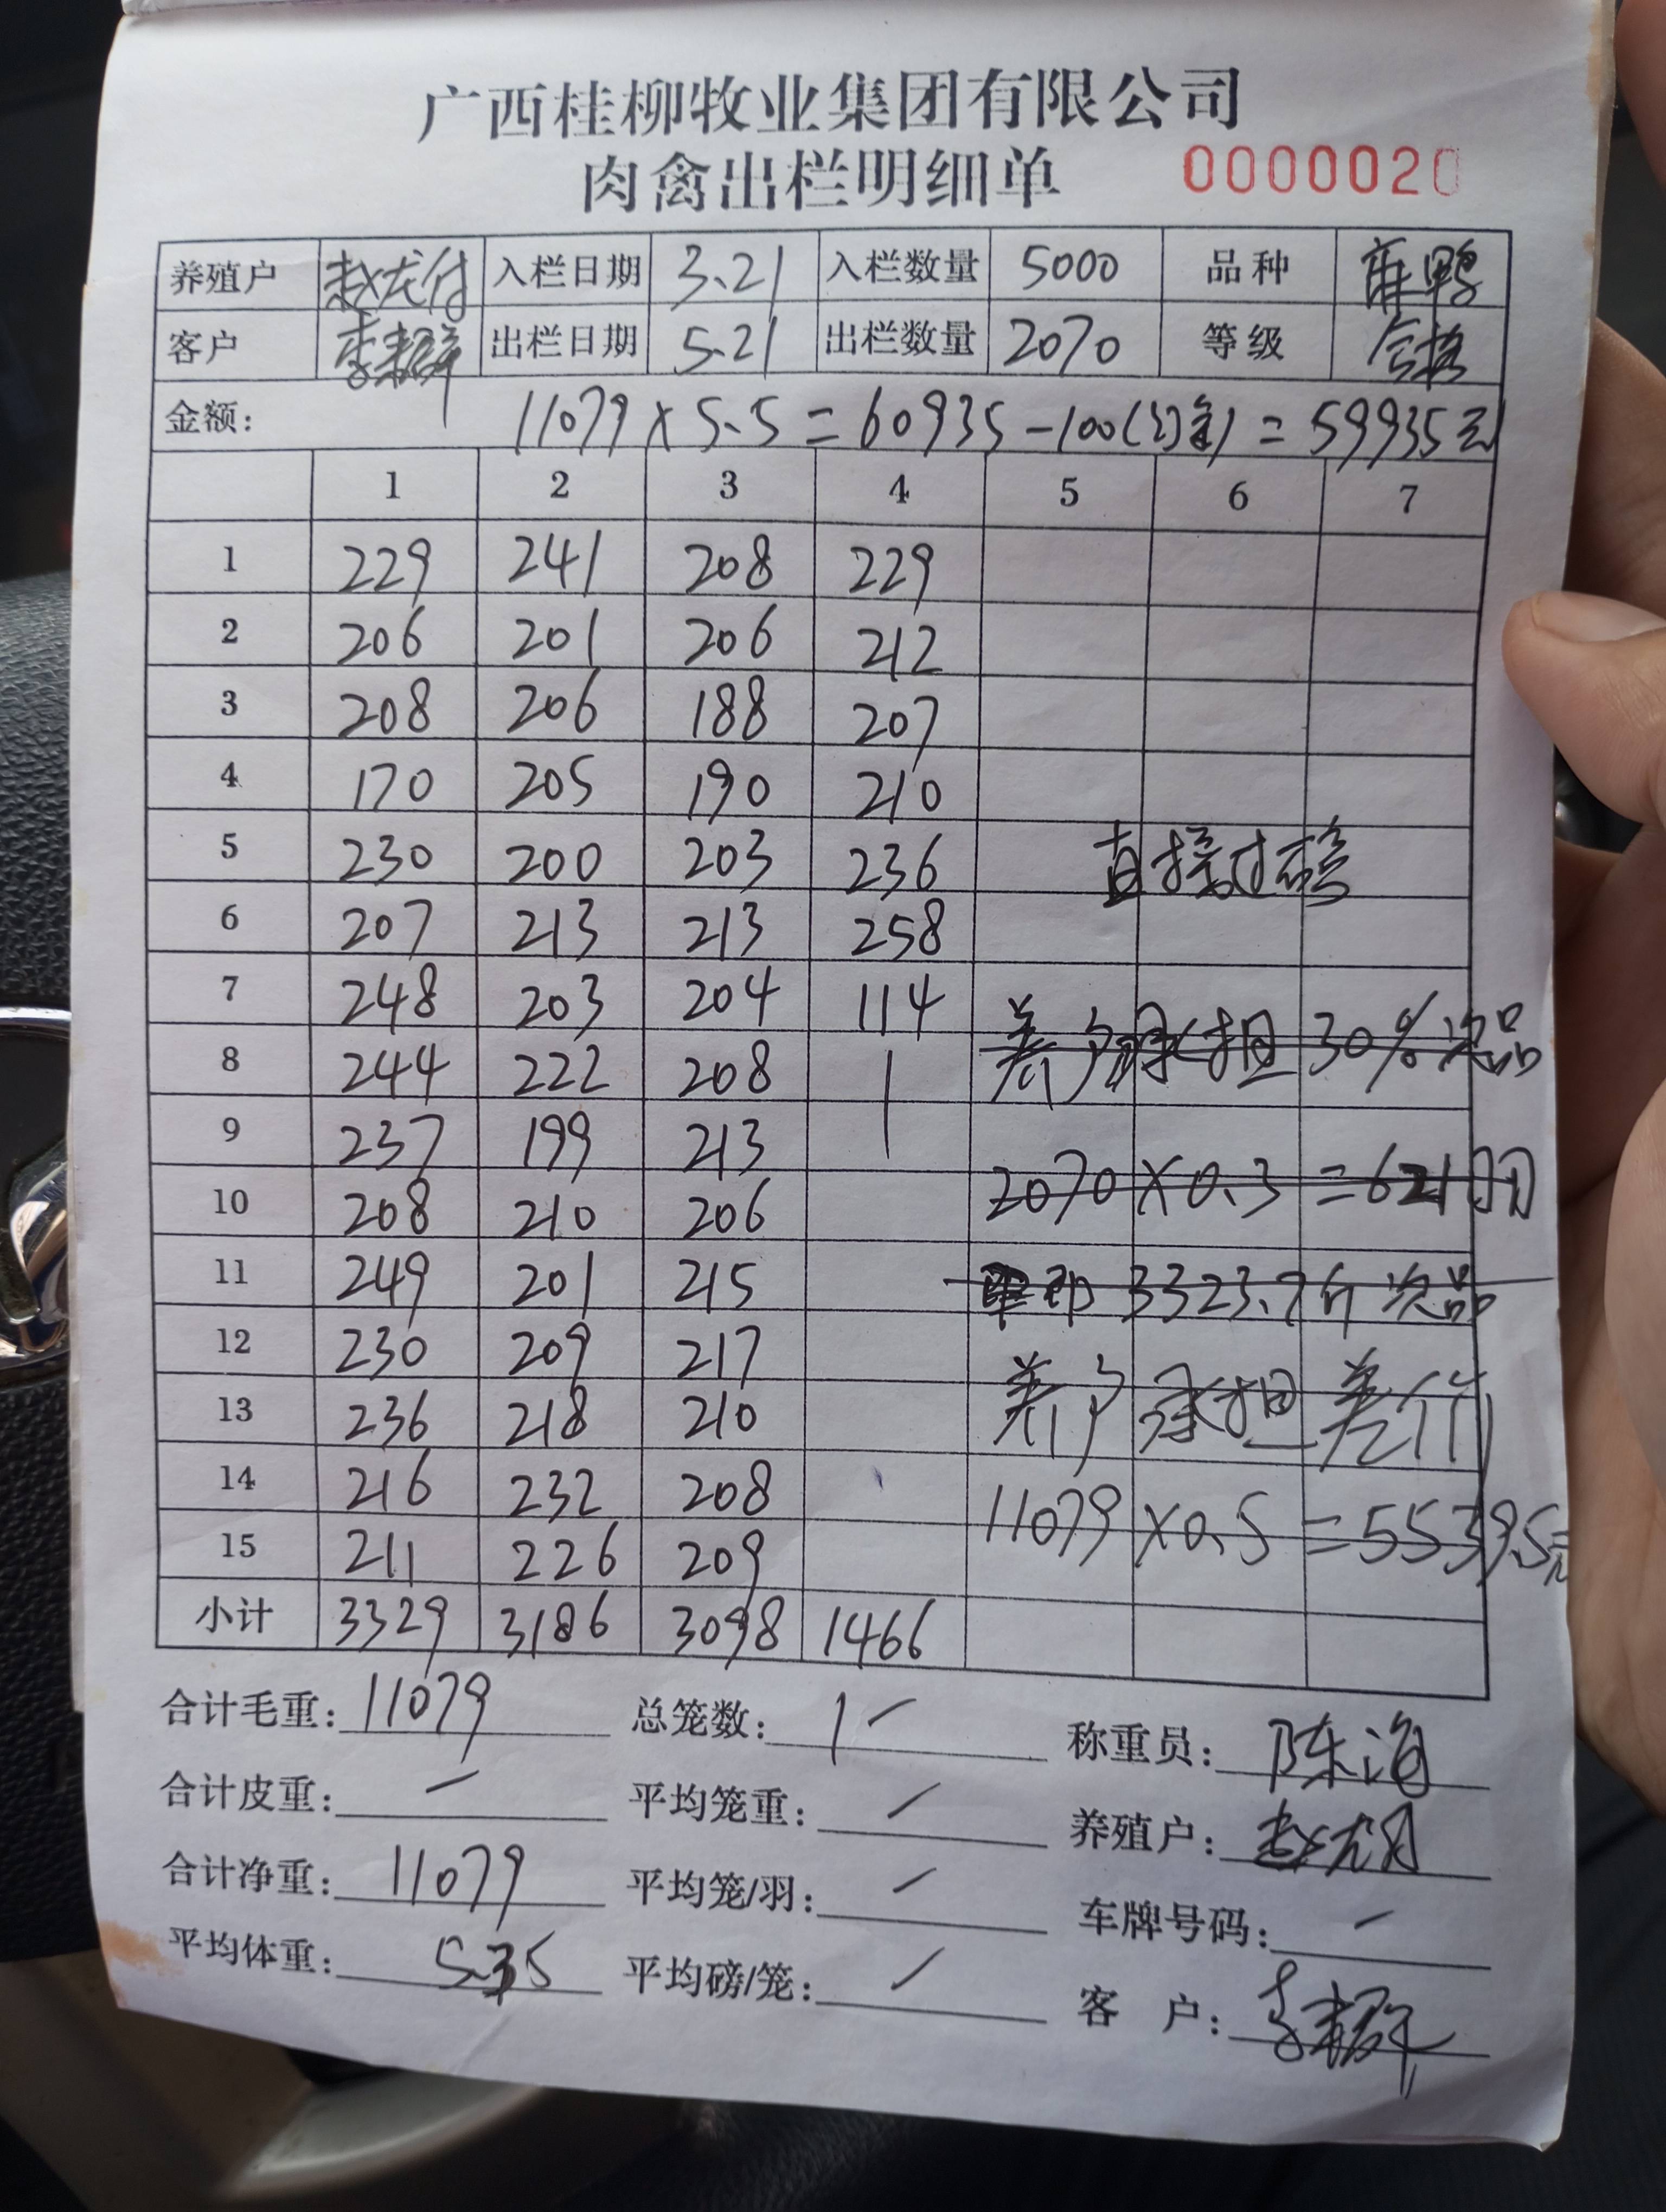 广西桂柳牧业集团有限公司
肉禽出栏明细单 0000020
养殖户 赵龙付 入栏日期 3.21 入栏数量 5000 品种 麻鸭
客户 李 出栏日期 5.21 出栏数量 2070 等级 合格
金额: 11079×5.5=60935-100(订金)=59935元
1 2 3 4 5 6 7
1 229 241 208 229
2 206 201 206 212
3 208 206 188 207
4 170 205 190 210
5 230 200 203 236 直接过磅
6 207 213 213 258
7 248 203 204 114 养户承担30%次品
8 244 222 208
9 237 199 213
10 208 210 206 2070×0.3=621
11 249 201 215 即3323.7斤次品
12 230 209 217
13 236 218 210 养户承担差价
14 216 232 208
15 211 226 209 11079×0.5=5539.5元
小计 3329 3186 3098 1466
合计毛重: 11079 总笼数: 称重员: 陈海
合计皮重: 平均笼重: 养殖户: 赵龙
合计净重: 11079 平均笼/羽: 车牌号码:
平均体重: 5.35 平均磅/笼: 客 户: 李